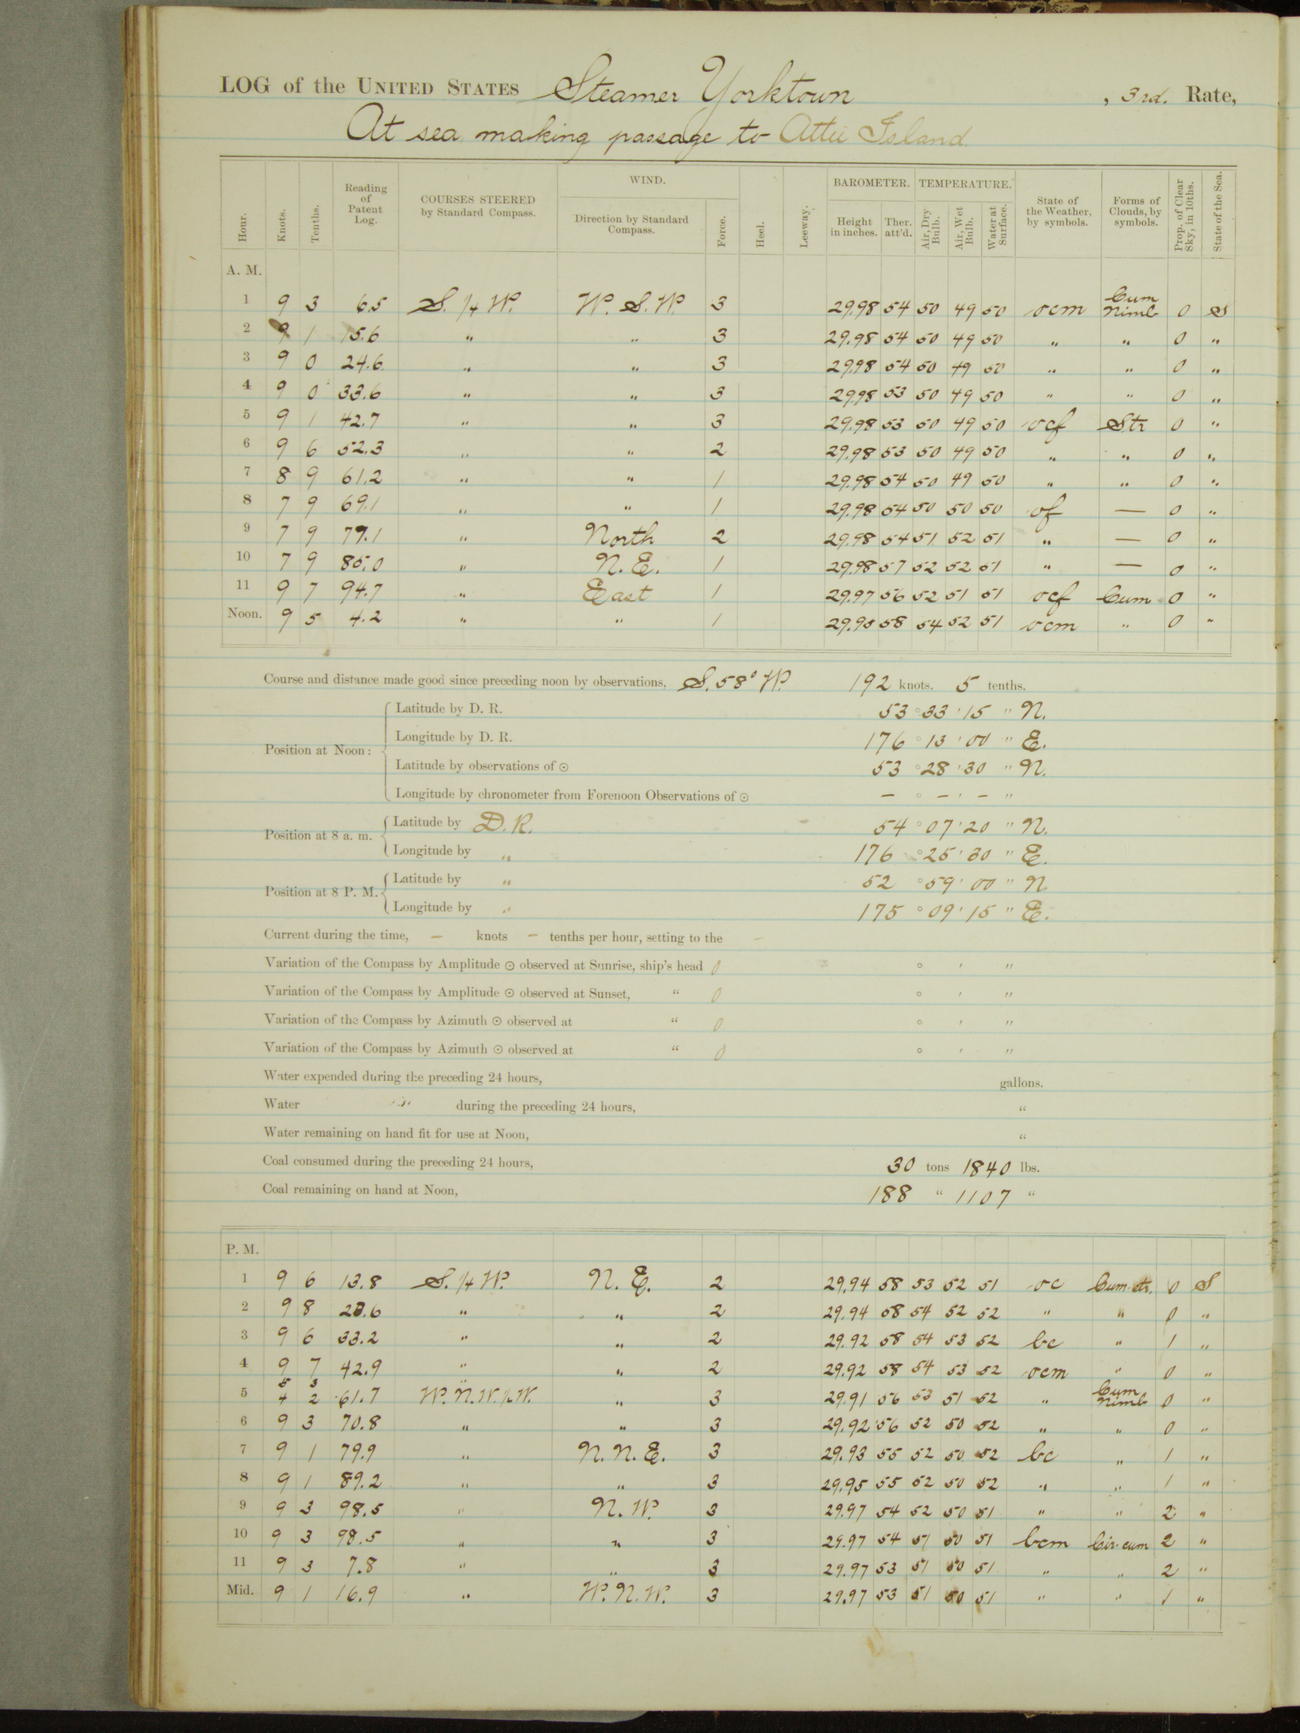 LOG of the UNITED STATES Steamer Yorktown, 3rd. Rate,
At sea making passage to Attu Island.
Hour. Knots. Tenths. Reading of Patent Log. COURSES STEERED by Standard Compass. WIND. Direction by Standard Compass. Force. Heel. Leeway. BAROMETER. Height in inches. Ther. att'd. TEMPERATURE. Air, Dry Bulb. Air, Wet Bulb. Water at Surface. State of the Weather, by symbols. Forms of Clouds, by symbols. Prop. of Clear Sky, in 10ths. State of the Sea.
A. M.
1 9 3 6.5 S. 1/4 W. W. S. W. 3 29.98 54 50 49 50 ocm Cum Nimb 0 S
2 9 1 15.6 " " 3 29.98 54 50 49 50 " " 0 "
3 9 0 24.6 " " 3 29.98 54 50 49 50 " " 0 "
4 9 0 33.6 " " 3 29.98 53 50 49 50 " " 0 "
5 9 1 42.7 " " 3 29.98 53 50 49 50 ocf Str 0 "
6 9 6 52.3 " " 2 29.98 53 50 49 50 " " 0 "
7 8 9 61.2 " " 1 29.98 54 50 49 50 " " 0 "
8 7 9 69.1 " " 1 29.98 54 50 50 50 of — 0 "
9 7 9 77.1 " North 2 29.98 54 51 52 51 " — 0 "
10 7 9 85.0 " N. E. 1 29.98 57 52 52 51 " — 0 "
11 9 7 94.7 " East 1 29.97 56 52 51 51 ocf Cum 0 "
Noon. 9 5 4.2 " " 1 29.95 58 54 52 51 ocm " 0 "
Course and distance made good since preceding noon by observations, S. 58° W. 192 knots. 5 tenths.
Position at Noon: Latitude by D. R. 53 ° 33 ' 15 " N.
Longitude by D. R. 176 ° 13 ' 00 " E.
Latitude by observations of ☉ 53 ° 28 ' 30 " N.
Longitude by chronometer from Forenoon Observations of ☉ — ° — ' — "
Position at 8 a. m. Latitude by D. R. 54 ° 07 ' 20 " N.
Longitude by " 176 ° 25 ' 30 " E.
Position at 8 P. M. Latitude by " 52 ° 59 ' 00 " N
Longitude by " 175 ° 09 ' 15 " E.
Current during the time, — knots — tenths per hour, setting to the —
Variation of the Compass by Amplitude ☉ observed at Sunrise, ship's head 0 ° ' "
Variation of the Compass by Amplitude ☉ observed at Sunset, " 0 ° ' "
Variation of the Compass by Azimuth ☉ observed at " 0 ° ' "
Variation of the Compass by Azimuth ☉ observed at " 0 ° ' "
Water expended during the preceding 24 hours, gallons.
Water during the preceding 24 hours, "
Water remaining on hand fit for use at Noon, "
Coal consumed during the preceding 24 hours, 30 tons 1840 lbs.
Coal remaining on hand at Noon, 188 " 1107 "
P. M.
1 9 6 13.8 S. 1/4 W. N. E. 2 29.94 58 53 52 51 oc Cum-str. 0 S
2 9 8 23.6 " " 2 29.94 58 54 52 52 " " 0 "
3 9 6 33.2 " " 2 29.92 58 54 53 52 bc " 1 "
4 9 7 42.9 " " 2 29.92 58 54 53 52 ocm " 0 "
5 5 3 4 2 61.7 W. N. W. 1/2 W. " 3 29.91 56 53 51 52 " Cum Nimb 0 "
6 9 3 70.8 " " 3 29.92 56 52 50 52 " " 0 "
7 9 1 79.9 " N. N. E. 3 29.93 55 52 50 52 bc " 1 "
8 9 1 89.2 " " 3 29.95 55 52 50 52 " " 1 "
9 9 3 98.5 " N. W. 3 29.97 54 52 50 51 " " 2 "
10 9 3 98.5 " " 3 29.97 54 51 50 51 bcm Cir-cum 2 "
11 9 3 7.8 " " 3 29.97 53 51 50 51 " " 2 "
Mid. 9 1 16.9 " W. N. W. 3 29.97 53 51 50 51 " " 1 "